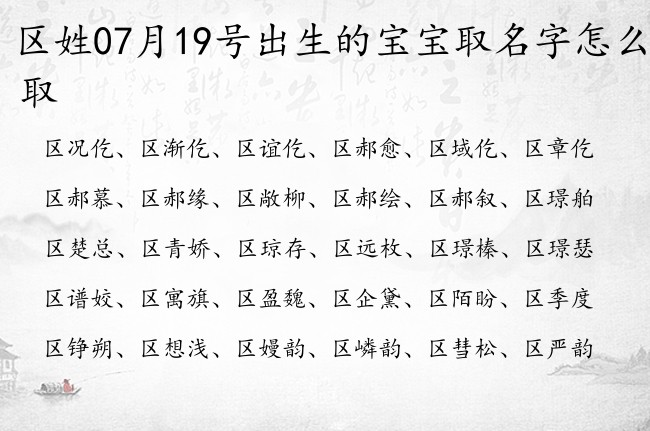 区姓07月19号出生的宝宝取名字怎么
取
区况仡、区渐仡、区谊仡、区郝愈、区域仡、区章仡
区郝慕、区郝缘、区敞柳、区郝绘、区郝叙、区璟舶
区楚总、区青娇、区琼存、区远枚、区璟榛、区璟瑟
区谱姣、区寓旗、区盈魏、区企黛、区陌盼、区季度
区铮朔、区想浅、区嫚韵、区嶙韵、区彗松、区严韵